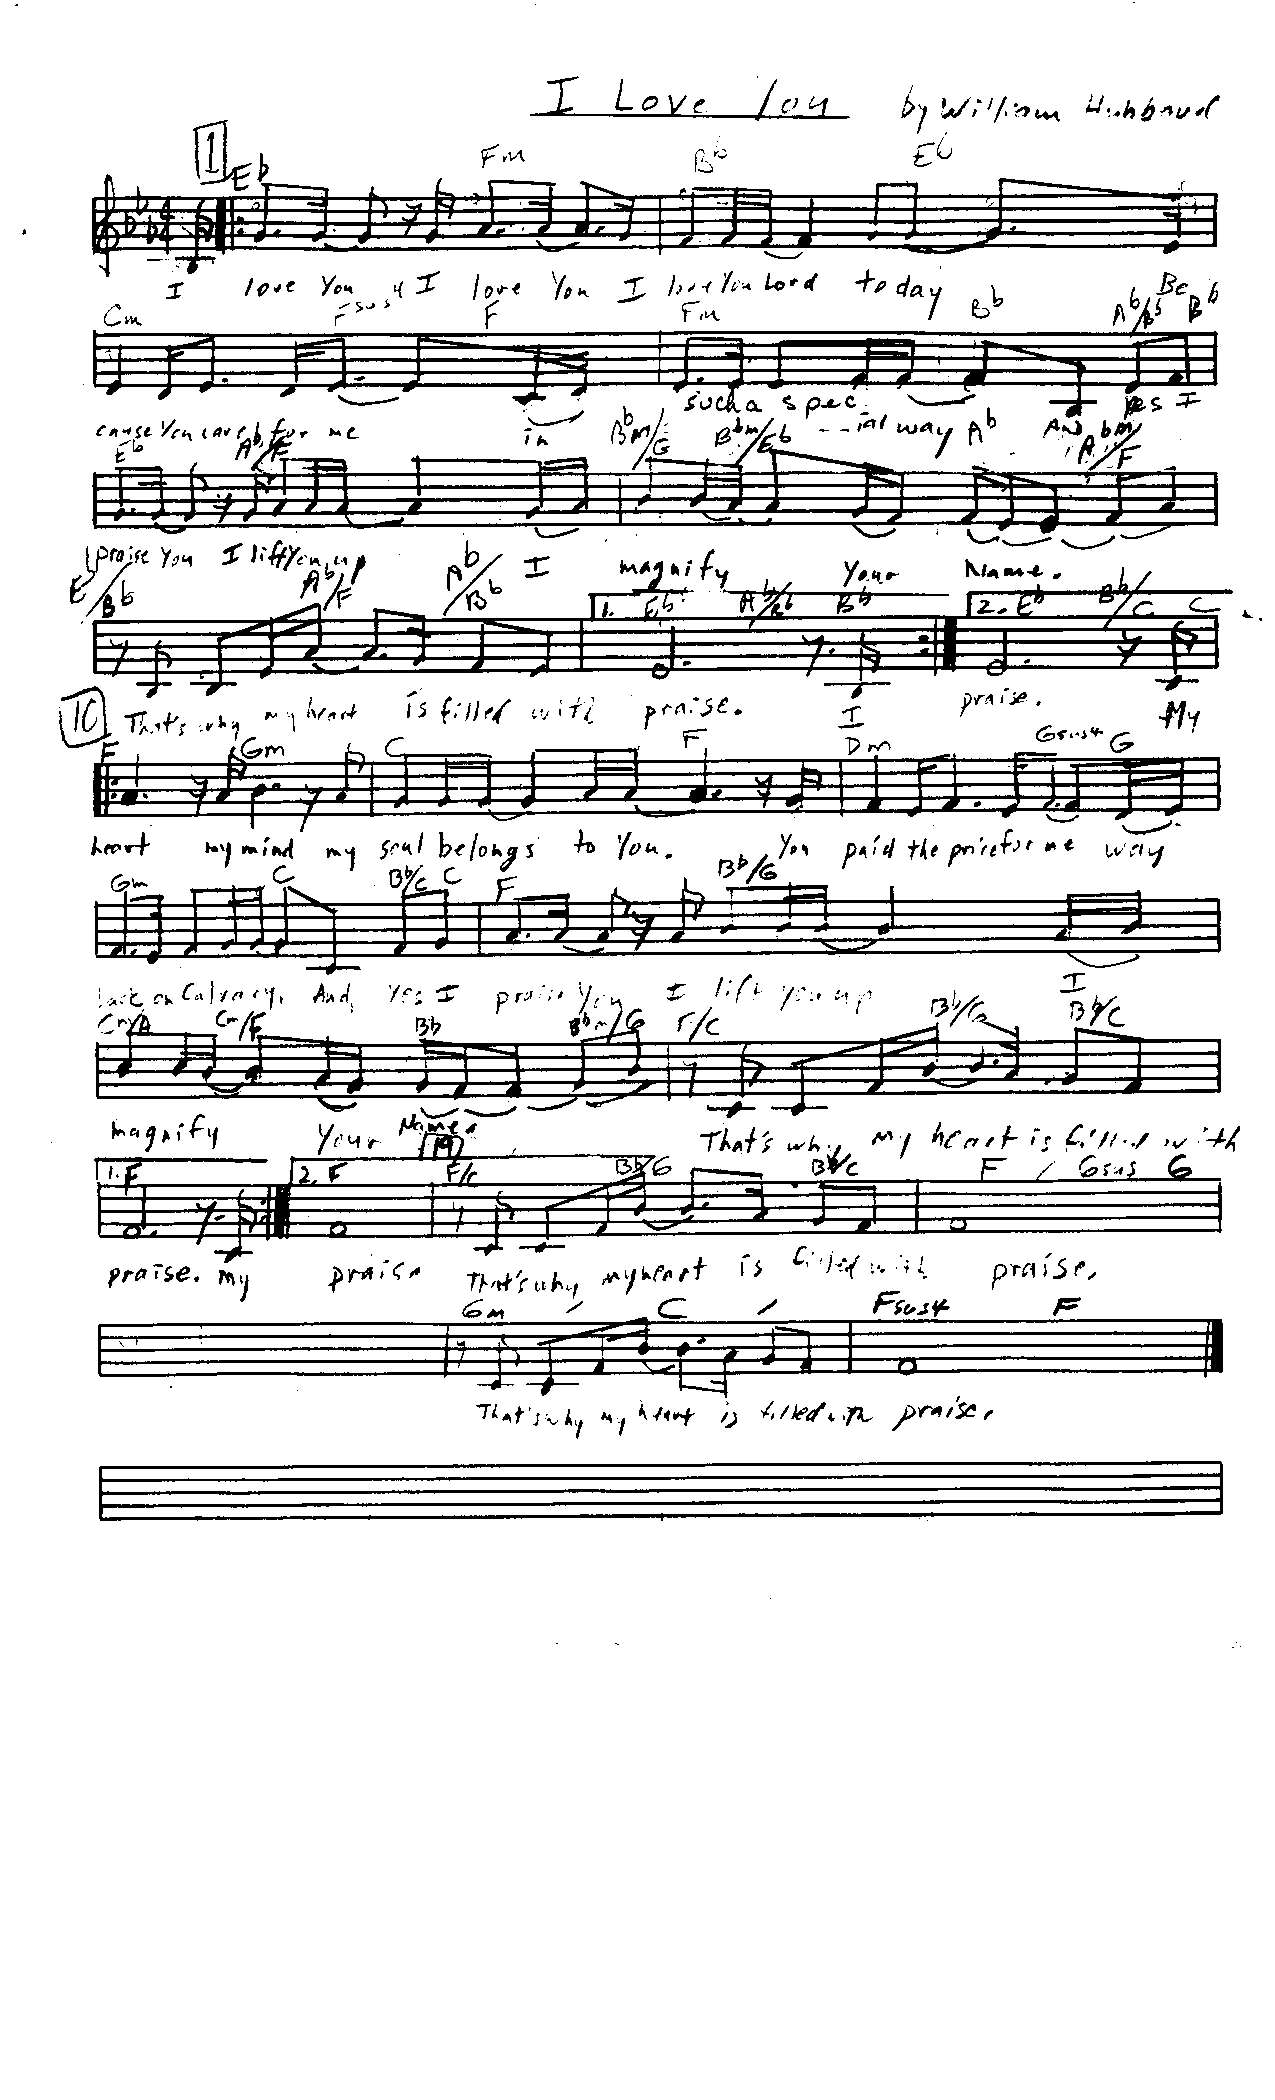 I Love You by William Hubbard
1
Eb Fm Bb Eb
I love You I love You I love You Lord today Be
Cm Fsus4 F Fm Bb Ab/Bb Bb
cause You care for me in such a spec - - ial way And yes I
Eb Ab/F Bbm/G Bbm/Eb Ab Abm/F
praise You I lift You up I magnify Your Name.
E/Bb Ab/F Ab/Bb 1. Eb Ab/Bb Bb 2. Eb Bb/C C
That's why my heart is filled with praise. I praise. My
10
F Gm C F Dm Gsus4 G
heart my mind my soul belongs to You. You paid the price for me way
Gm C Bb/C C F Bb/G
back on Calvary. And yes I praise You I lift You up I
Cm/A Cm/F Bb Bbm/G F/C Bb/G Bb/C
magnify Your Name. That's why my heart is filled with
19
1. F 2. F F/C Bb/G Bb/C F / Gsus G
praise. My praise That's why my heart is filled with praise.
Gm / C / Fsus4 F
That's why my heart is filled with praise.